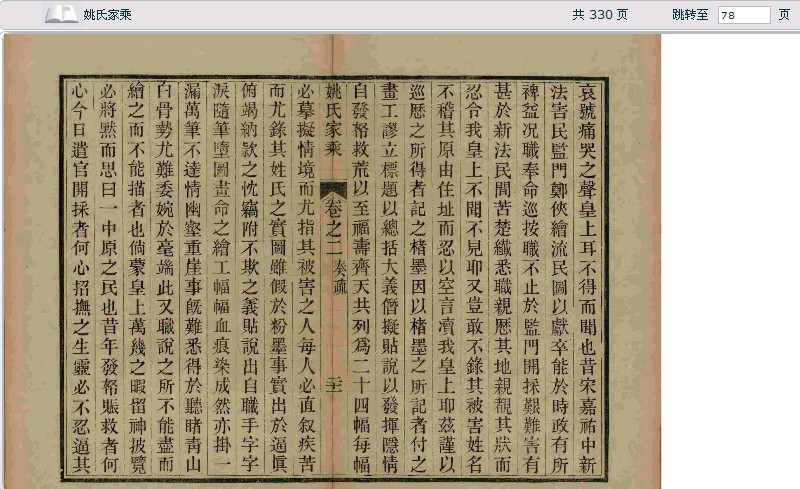 姚氏家乘
共 330 页
跳转至 78 页
哀號痛哭之聲皇上耳不得而聞也昔宋嘉祐中新
法害民監門鄭俠繪流民圖以獻卒能於時政有所
裨益况職奉命巡按職不止於監門開採艱難害有
甚於新法民間苦楚纖悉職親歷其地親觀其狀而
忍令我皇上不聞不見耶又豈敢不錄其被害姓名
不稽其原由住址而忍以空言凟我皇上耶茲謹以
巡歷之所得者記之楮墨因以楮墨之所記者付之
畫工謬立標題以總括大義僭擬貼說以發揮隱情
自發帑救荒以至福壽齊天共列為二十四幅每幅
姚氏家乘 卷之二 奏疏 三十
必摹擬情境而尤指其被害之人每人必直叙疾苦
而尤錄其姓氏之實圖雖假於粉墨事實出於逼眞
俯竭納欵之忱竊附不欺之義貼說出自職手字字
淚隨筆墮圖畫命之繪工幅幅血痕染成然亦掛一
漏萬筆不達情幽壑重崖事旣難悉得於聽睹青山
白骨勢尤難委婉於毫端此又職說之所不能盡而
繪之而不能描者也倘蒙皇上萬幾之暇留神披覽
必將黙而思曰一中原之民也昔年發帑賑救者何
心今日遣官開採者何心招撫之生靈必不忍逼其